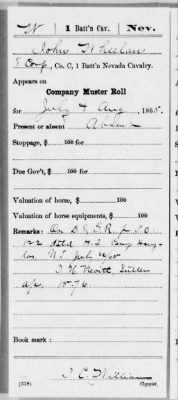 W | 1 Batt'n Cav. | Nev.
John Wheelan
Corp, Co. C, 1 Batt'n Nevada Cavalry.
Appears on
Company Muster Roll
for July & Aug, 1865.
Present or absent Absent
Stoppage, $ 100 for
Due Gov't, $ 100 for
Valuation of horse, $ 100
Valuation of horse equipments, $ 100
Remarks: On D.S. S.O.
122 dated H.Q. Camp Doug-
las, U.T. July
Sutler
15.76
Book mark:
(358) Copyist.